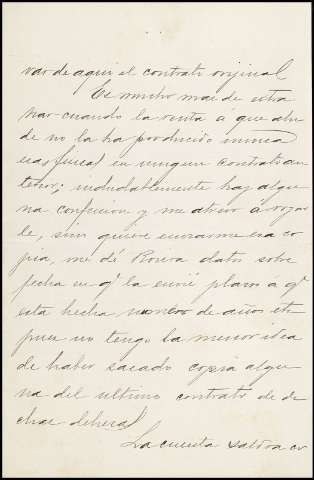 var de aqui el contrato orijinal
Es mucho mas de estra
ñar cuando la venta a que alu
de no la ha producido nunca
en ningun contrato an
terior; indudablemente hay algu
na confusion y me atrevo á rogar
le, si no quiere enviarme esa co
pia, me dé Rivera datos sobre
fecha en qe la envié plazo á qe
esta hecha numero de años etc
pues no tengo la menor idea
de haber sacado copia algu
na del ultimo contrato de de
cha dehesa
La cuenta saldra co